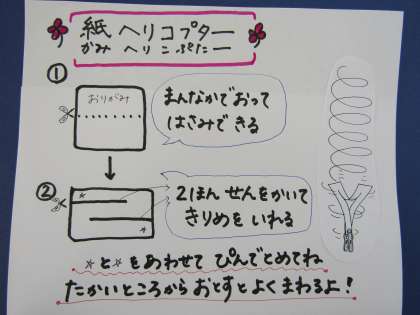 紙ヘリコプター
かみ へりこぷたー
①
おりがみ
まんなかでおって
はさみできる
②
2ほん せんをかいて
きりめを いれる
☆と☆をあわせて ぴんでとめてね
たかいところから おとすとよくまわるよ！